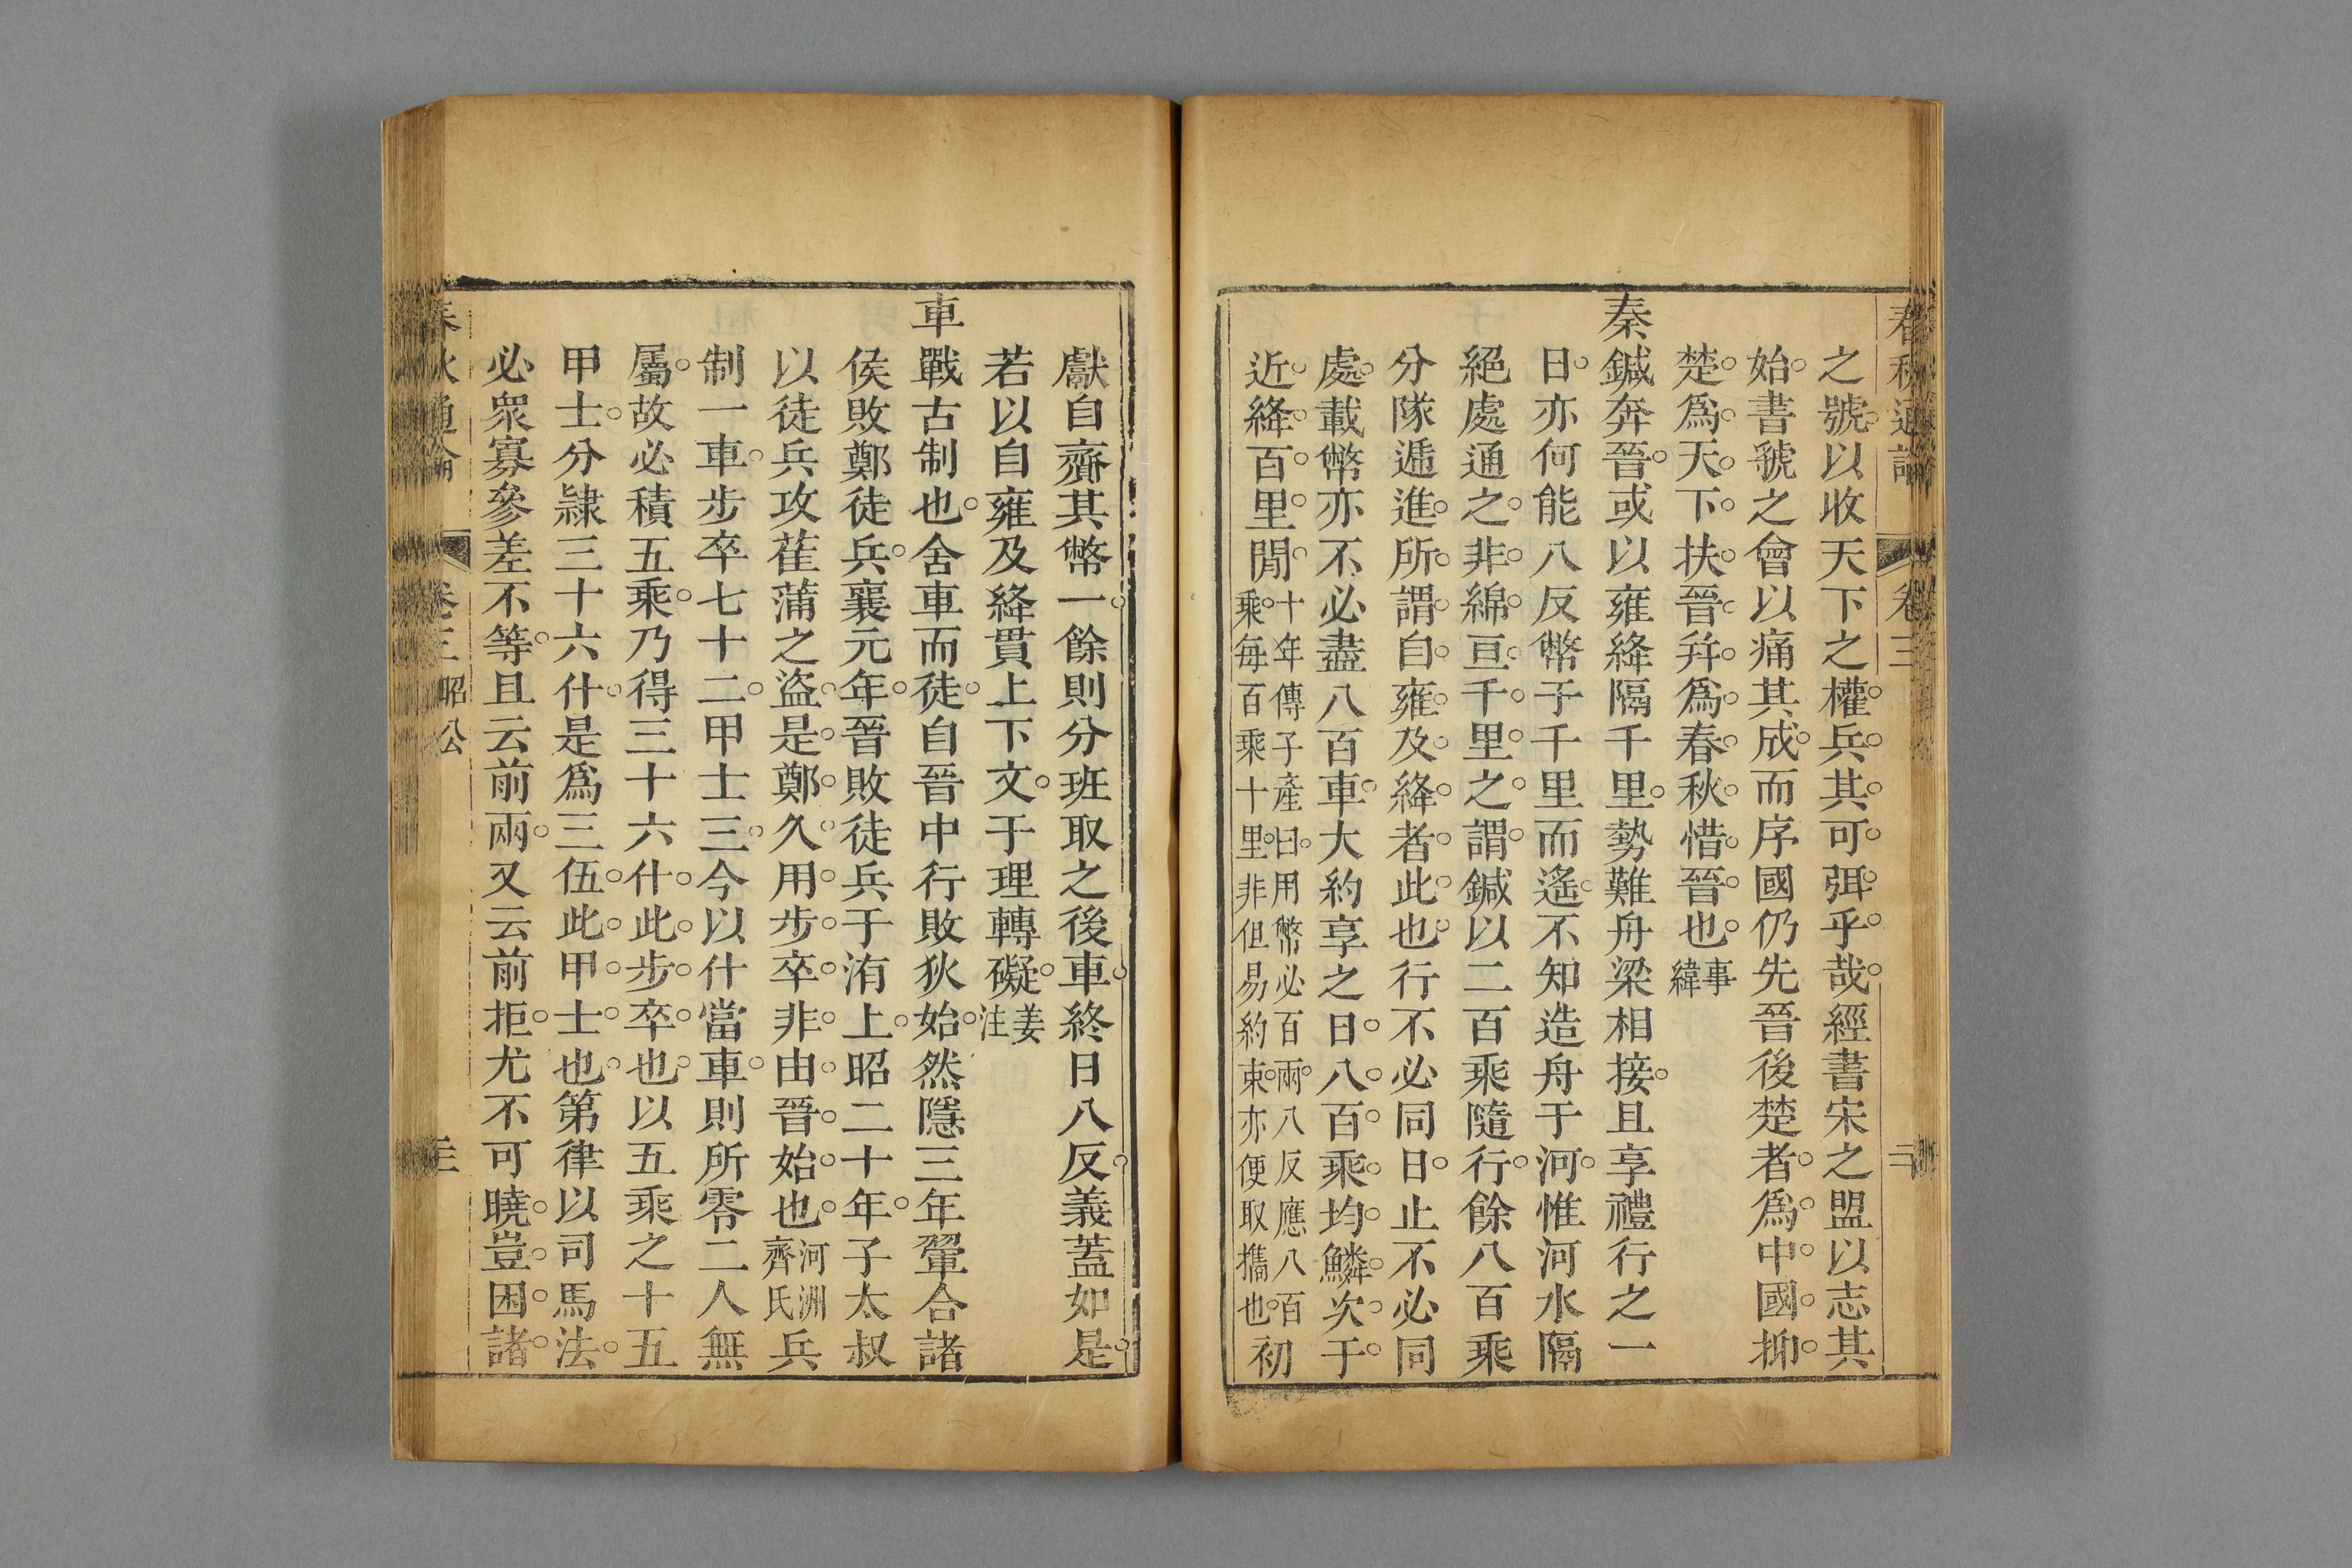 春秋通論 卷三 二
之號以收天下之權兵其可弭乎哉經書宋之盟以志其
始書虢之會以痛其成而序國仍先晉後楚者爲中國抑
楚爲天下扶晉幷爲春秋惜晉也事緯
秦鍼奔晉或以雍絳隔千里勢難舟梁相接且享禮行之一
日亦何能八反幣于千里而遙不知造舟于河惟河水隔
絕處通之非綿亘千里之謂鍼以二百乘隨行餘八百乘
分隊遞進所謂自雍及絳者此也行不必同日止不必同
處載幣亦不必盡八百車大約享之日八百乘均鱗次于
近絳百里閒十年傳子產曰用幣必百兩八反應八百乘每百乘十里非但易約束亦便取攜也初
獻自齎其幣一餘則分班取之後車終日八反義蓋如是
若以自雍及絳貫上下文于理轉礙姜注
車戰古制也舍車而徒自晉中行敗狄始然隱三年翬合諸
侯敗鄭徒兵襄元年晉敗徒兵于洧上昭二十年子太叔
以徒兵攻萑蒲之盜是鄭久用步卒非由晉始也河洲齊氏兵
制一車步卒七十二甲士三今以什當車則所零二人無
屬故必積五乘乃得三十六什此步卒也以五乘之十五
甲士分隸三十六什是爲三伍此甲士也第律以司馬法
必衆寡參差不等且云前兩又云前拒尤不可曉豈困諸
春秋通論 卷三 昭公 三